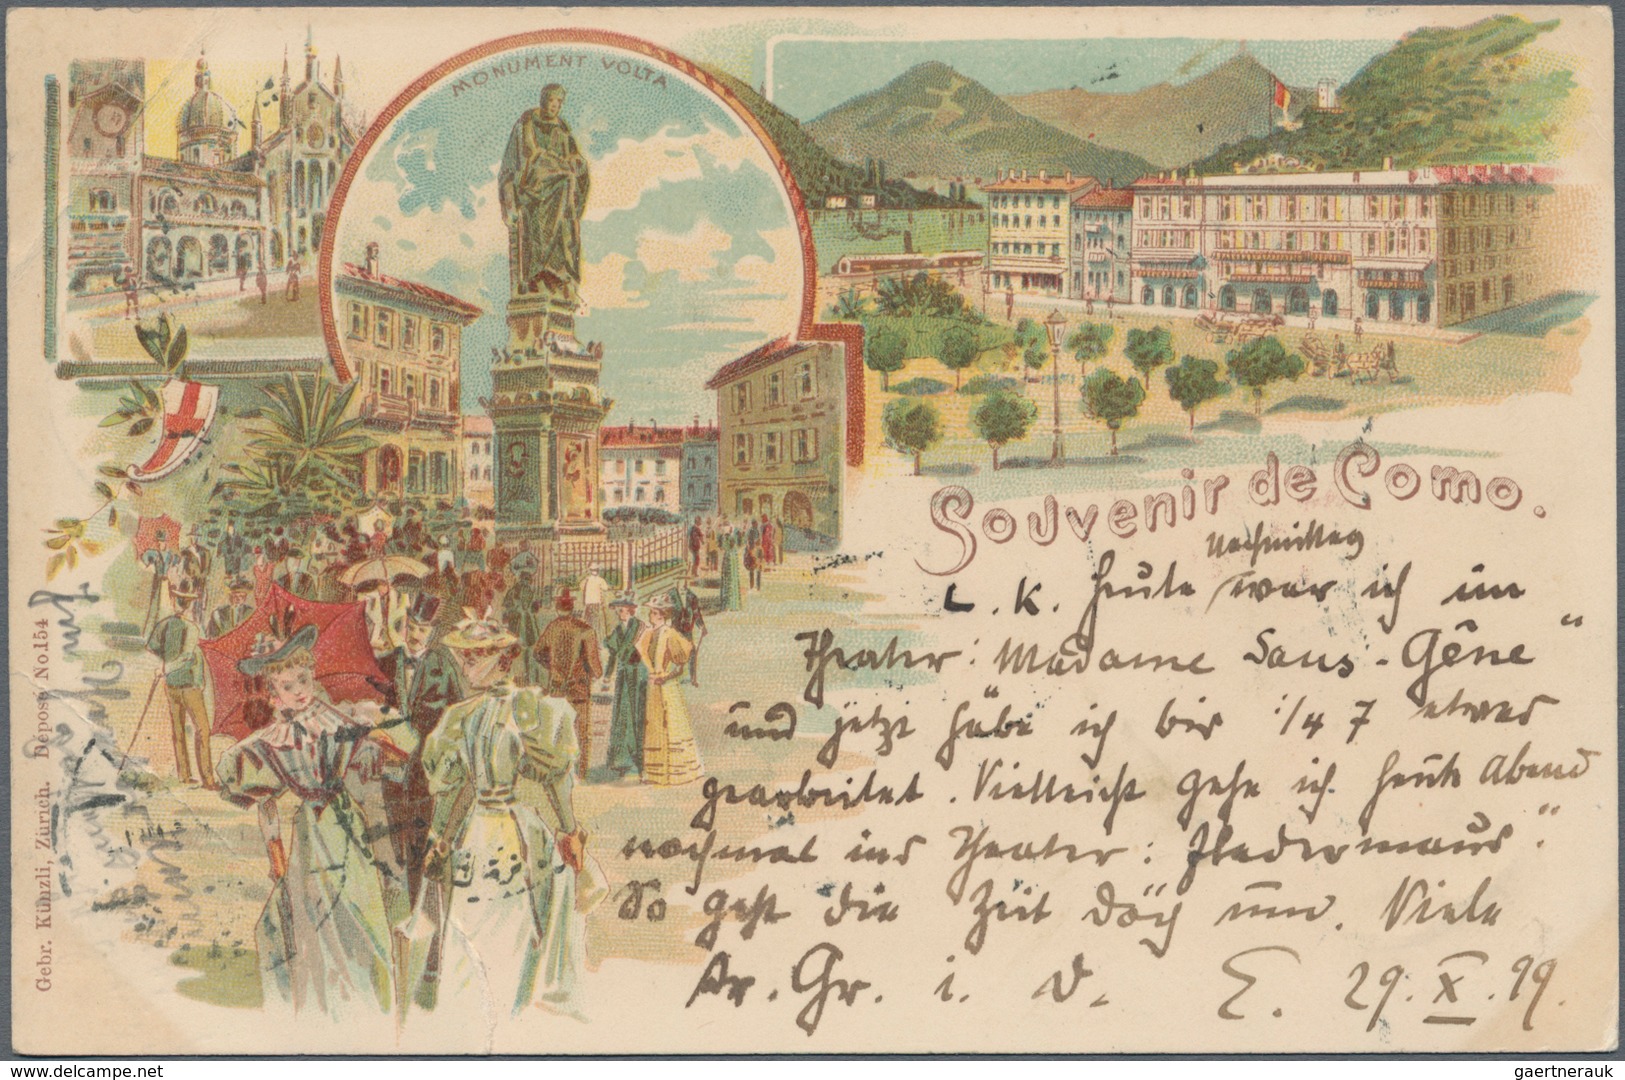 MONUMENT VOLTA
Souvenir de Como.
Nachmittag
L. K. Heute war ich im
Theater: Madame Sans-Gêne"
und jetzt habe ich bis 1/4 7 etwas
gearbeitet. Vielleicht gehe ich heute Abend
nochmal ins Theater: Fledermaus".
So geht die Zeit doch um. Viele
Gr. i. d. E. 29. X. 99.
Gebr. Künzli, Zürich. Déposé No. 154
ehemalshop.net
gaertnerauk